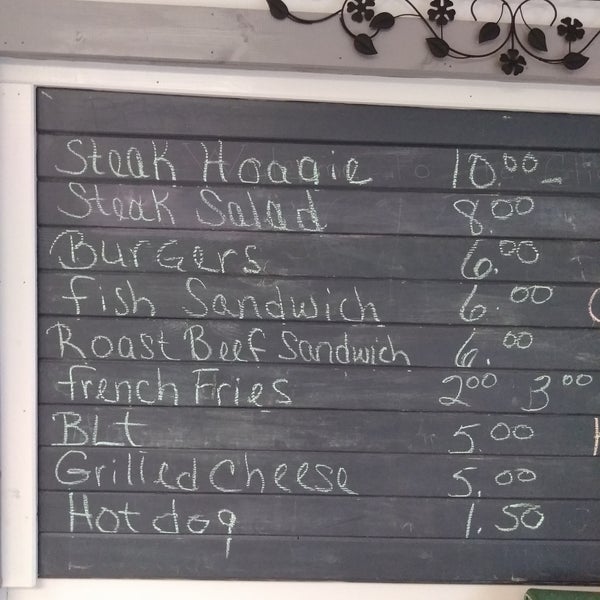 Steak Hoagie 10.00
Steak Salad 8.00
Burgers 6.00
fish Sandwich 6.00
Roast Beef Sandwich 6.00
french Fries 2.00 3.00
BLt 5.00
Grilled cheese 5.00
Hot dog 1.50